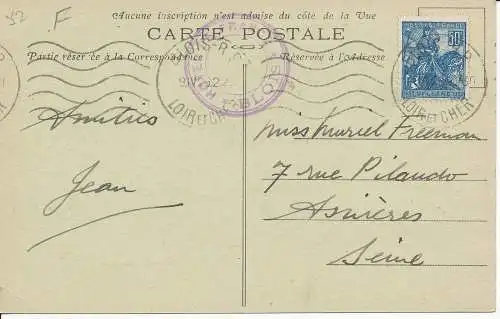 52 F
Aucune inscription n'est admise du côté de la Vue
CARTE POSTALE
Partie réservée à la Correspondance
Réservée à l'Adresse
BLOIS
LOIR ET CHER
BLOIS
50
LOIR ET CHER
Amitiés
Jean
Miss Muriel Freeman
7 rue Pilaudo
Asnières
Seine